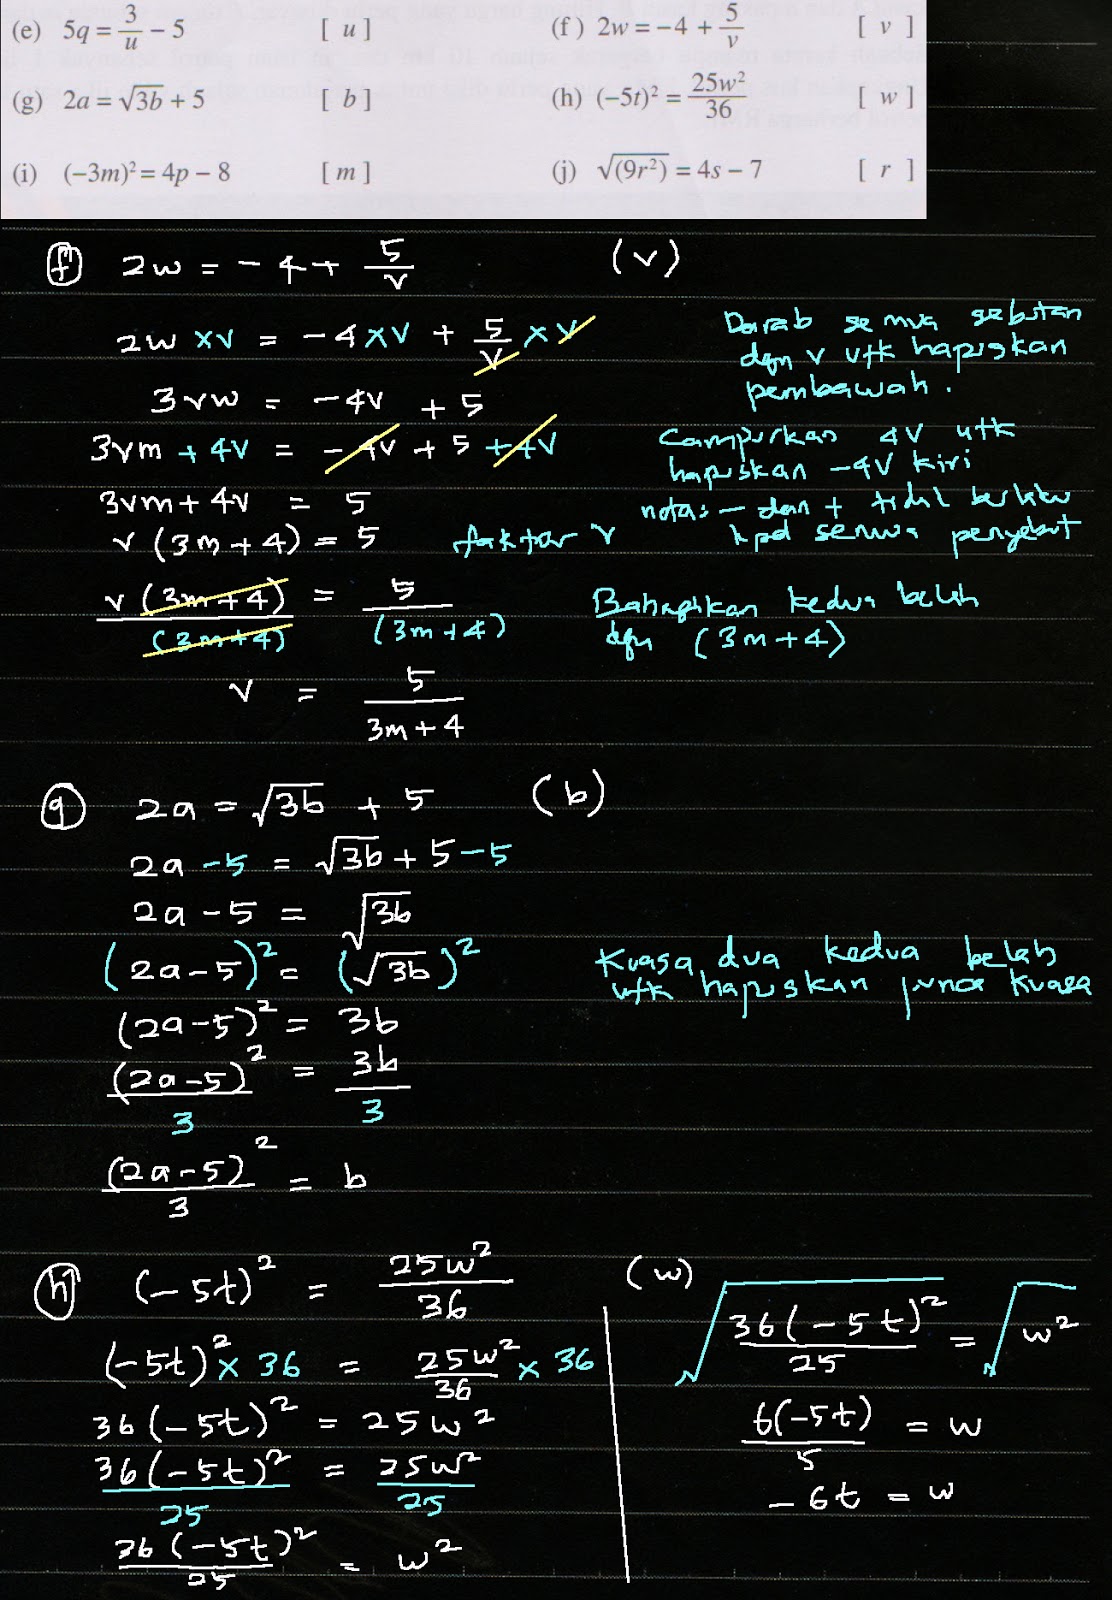 (e) 5q = 3/u − 5 [ u ] (f) 2w = −4 + 5/v [ v ]
(g) 2a = √3b + 5 [ b ] (h) (−5t)² = 25w²/36 [ w ]
(i) (−3m)² = 4p − 8 [ m ] (j) √(9r²) = 4s − 7 [ r ]
(f) 2w = −4 + 5/v (v)
2w ×v = −4 ×v + 5/v × v
Darab semua sebutan
dgn v utk hapuskan
pembawah.
3vw = −4v + 5
3vm + 4v = −4v + 5 + 4v
Campurkan 4v utk
hapuskan −4v kiri
3vm + 4v = 5
nota: − dan + tidak berlaku
kpd semua penyebut
v (3m + 4) = 5 faktor v
v (3m + 4)/(3m + 4) = 5/(3m + 4)
Bahagikan kedua belah
dgn (3m + 4)
v = 5/3m + 4
(g) 2a = √3b + 5 (b)
2a − 5 = √3b + 5 − 5
2a − 5 = √3b
(2a − 5)² = (√3b)²
Kuasa dua kedua belah
utk hapuskan punca kuasa
(2a − 5)² = 3b
(2a − 5)²/3 = 3b/3
(2a − 5)²/3 = b
(h) (−5t)² = 25w²/36 (w)
(−5t)² × 36 = 25w²/36 × 36
36(−5t)² = 25w²
36(−5t)²/25 = 25w²/25
36(−5t)²/25 = w²
√36(−5t)²/25 = √w²
6(−5t)/5 = w
−6t = w